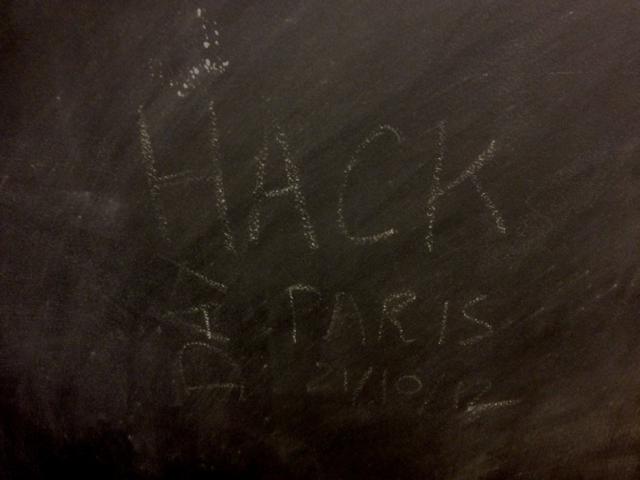 HACK
DAY
PARIS
21/10/12